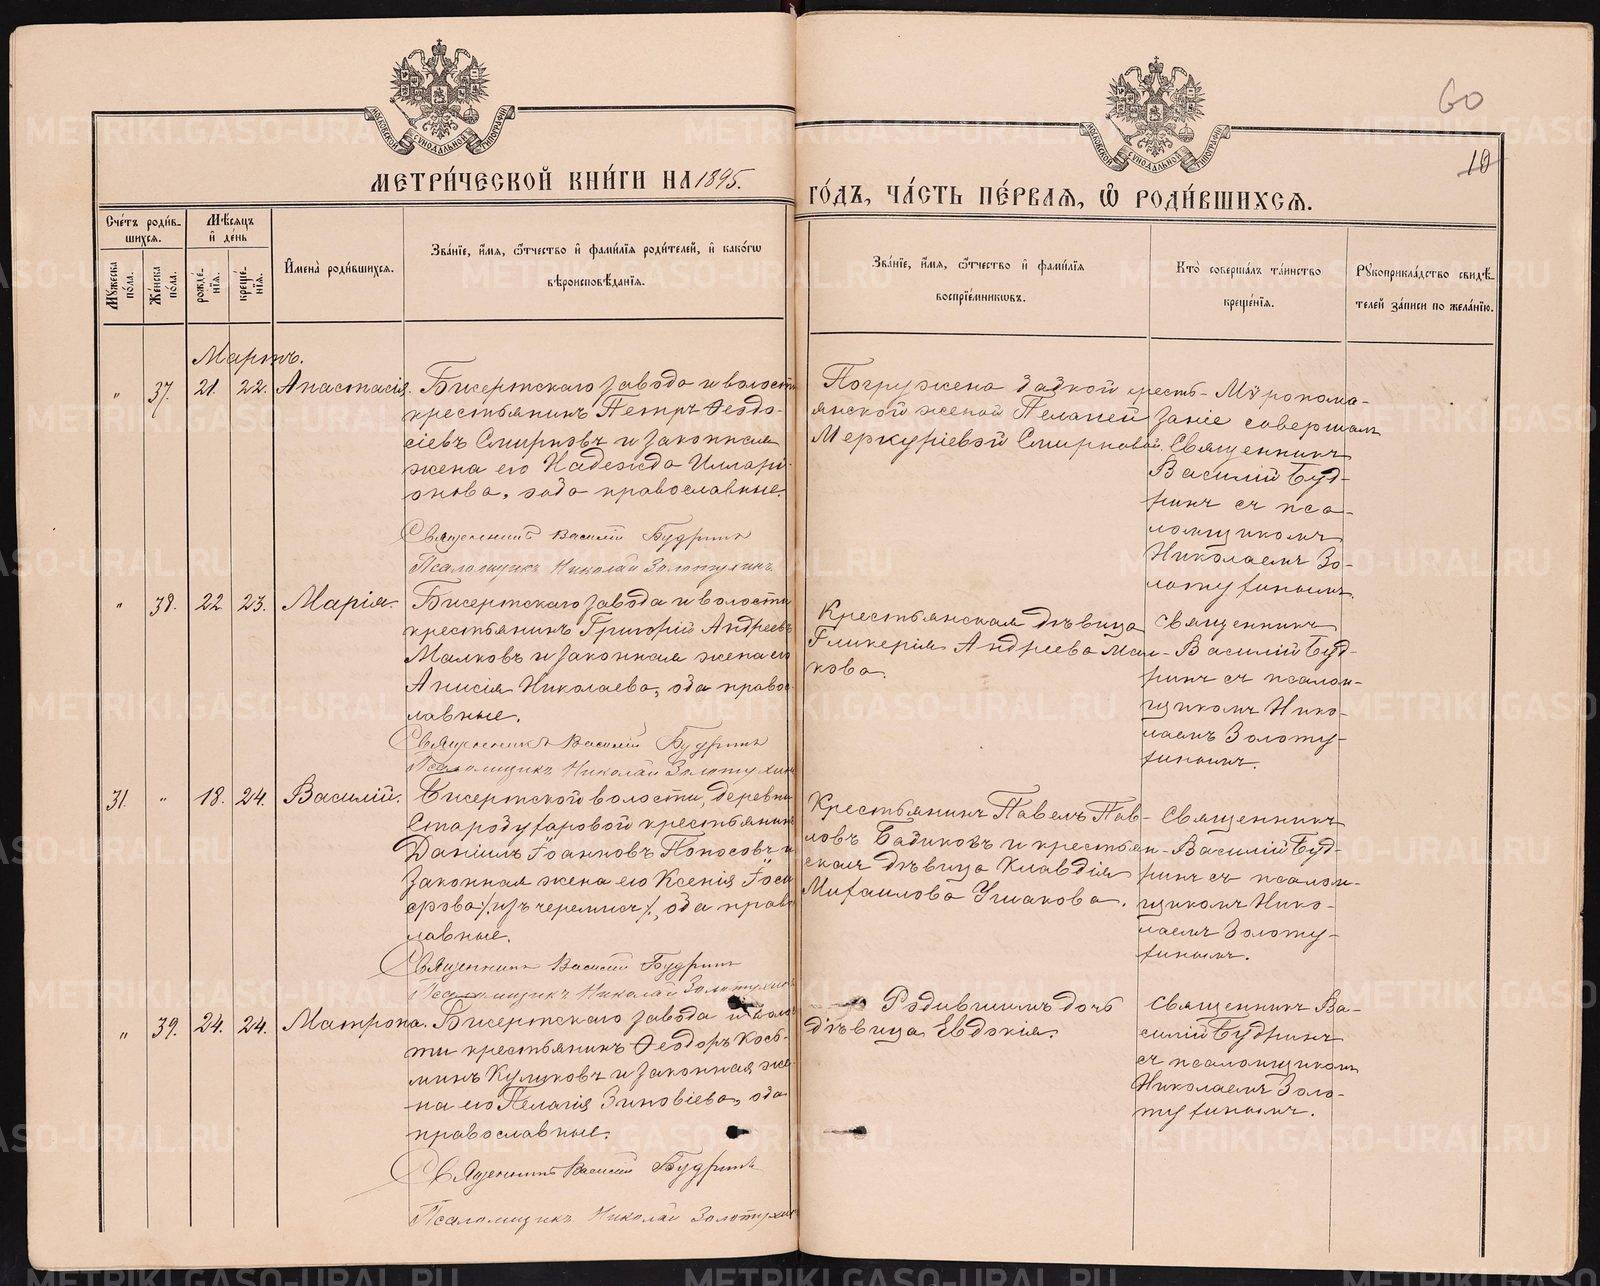 60
10
МОСКОВСКОЙ СѴНОДАЛЬНОЙ ТИПОГРАФІИ
МОСКОВСКОЙ СѴНОДАЛЬНОЙ ТИПОГРАФІИ
МЕТРИ́ЧЕСКОЙ КНИ́ГИ НА 1895.
ГО́ДЪ, ЧА́СТЬ ПЕ́РВАѦ, Ѡ҆ РОДИ́ВШИХСѦ.
Сче́тъ роди́в-
шихсѧ.
Мѣ́сѧцъ
и҆ де́нь
Мꙋ́жеска
по́ла.
Же́нска
по́ла.
рожде́-
нїѧ.
креще́-
нїѧ.
И҆мена̀ роди́вшихсѧ.
Зва́нїе, и҆́мѧ, ѻ҆́тчество и҆ фами́лїѧ роди́телей, и҆ како́гѡ
вѣроисповѣ́данїѧ.
Зва́нїе, и҆́мѧ, ѻ҆́тчество и҆ фами́лїѧ
воспрїе́мникѡвъ.
Кто̀ соверша́лъ та́инство
креще́нїѧ.
Рꙋкоприкла́дство свидѣ́-
телей за́писи по жела́нїю.
Мартъ.
" 37. 21. 22. Анастасія.
Бисертскаго завода и волости
крестьянинъ Петръ Ѳеодо-
сіевъ Смирновъ и законная
жена его Надежда Иллрі-
онова, оба православные.
Священникъ Василій Будринъ
Псаломщикъ Николай Золотухинъ
Погружена бабкой крестьянской женой Пелагией
Меркуріевой Смирновой.
Мѵропома-
заніе совершалъ
Священникъ
Василій Буд-
ринъ съ пса-
ломщикомъ
Николаемъ Зо-
лотухинымъ.
" 38. 22. 23. Марія.
Бисертскаго завода и волости
крестьянинъ Григорій Андреевъ
Малковъ и законная жена его
Анисія Николаева, оба право-
лавные.
Священникъ Василій Будринъ
Псаломщикъ Николай Золотухинъ
Крестьянская дѣвица
Гликерія Андреева Мал-
кова.
Священникъ
Василій Буд-
ринъ съ псалом-
щикомъ Нико-
лаемъ Золоту-
хинымъ.
31. " 18. 24. Василій.
Бисертской волости, деревни
Старобухаровой крестьянинъ
Даніилъ Іоанновъ Попосовъ и
законная жена его Ксенія
/изъ черемисъ/, оба право-
лавные.
Священникъ Василій Будринъ
Псаломщикъ Николай Золотухинъ
Крестьянинъ Павелъ Пав-
ловъ Бадиковъ и крестьян-
ская дѣвица Клавдія
Михаилова Ушакова.
Священникъ
Василій Буд-
ринъ съ псалом-
щикомъ Нико-
лаемъ Золоту-
хинымъ.
" 39. 24. 24. Матрона.
Бисертскаго завода и волос
ти крестьянинъ Ѳеодоръ Кось-
минъ Куликовъ и законная же-
на его Пелагія Зиновіева, оба
православные.
Священникъ Василій Будринъ
Псаломщикъ Николай Золотухинъ
Родившимъ дочь
дѣвица Евдокія.
Священникъ Ва-
силій Будринъ
съ псаломщикомъ
Николаемъ Золо-
тухинымъ.
METRIKI.GASO-URAL.RU